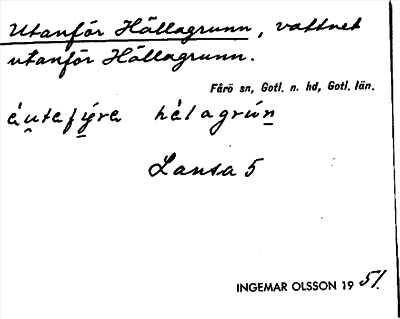 Utanför Hällagrunn, vattnet
utanför Hällagrunn.
Fårö sn, Gotl. n. hd, Gotl. län.
éu̯tefýra hélagrún
Lansa 5
INGEMAR OLSSON 19 51.